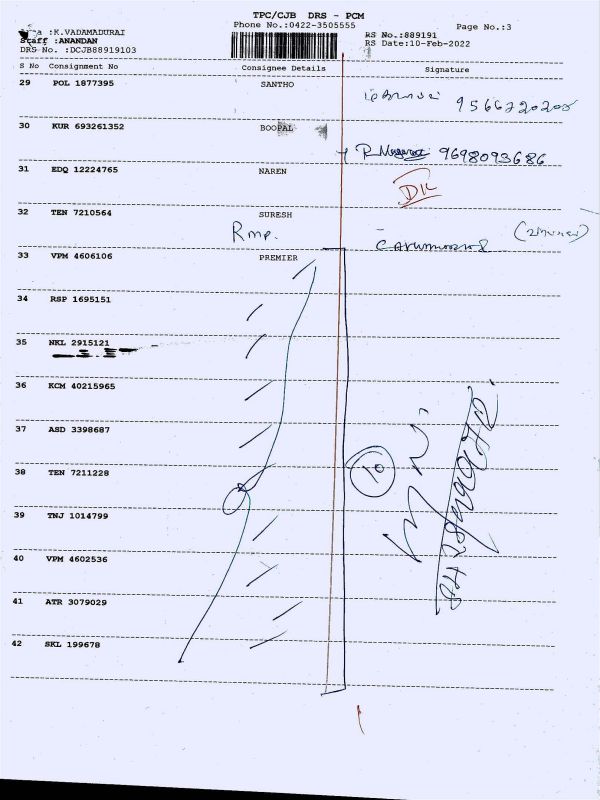 TPC/CJB DRS - PCM
Phone No.:0422-3505555 Page No.:3
:K.VADAMADURAI
Staff :ANANDAN RS No.:889191
DRS No. :DCJB88919103 RS Date:10-Feb-2022
S No Consignment No Consignee Details Signature
29 POL 1877395 SANTHO
9566720208
30 KUR 693261352 BOOPAL
9698093686
31 EDQ 12224765 NAREN
32 TEN 7210564 SURESH
33 VPM 4606106 PREMIER
34 RSP 1695151
35 NKL 2915121
36 KCM 40215965
37 ASD 3398687
10
38 TEN 7211228
39 TNJ 1014799
40 VPM 4602536
41 ATR 3079029
42 SKL 199678